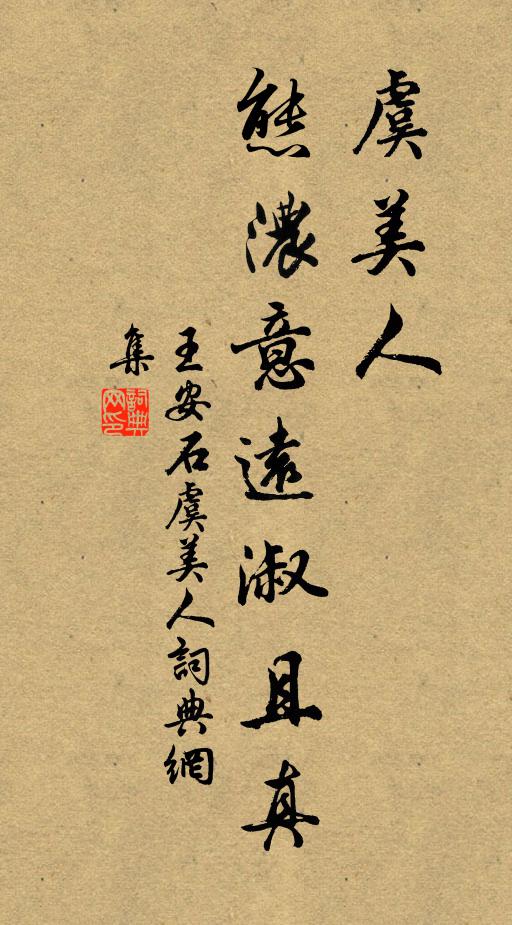 虞美人
態濃意遠淑且真
王安石虞美人詞典網
集
詞典
网印